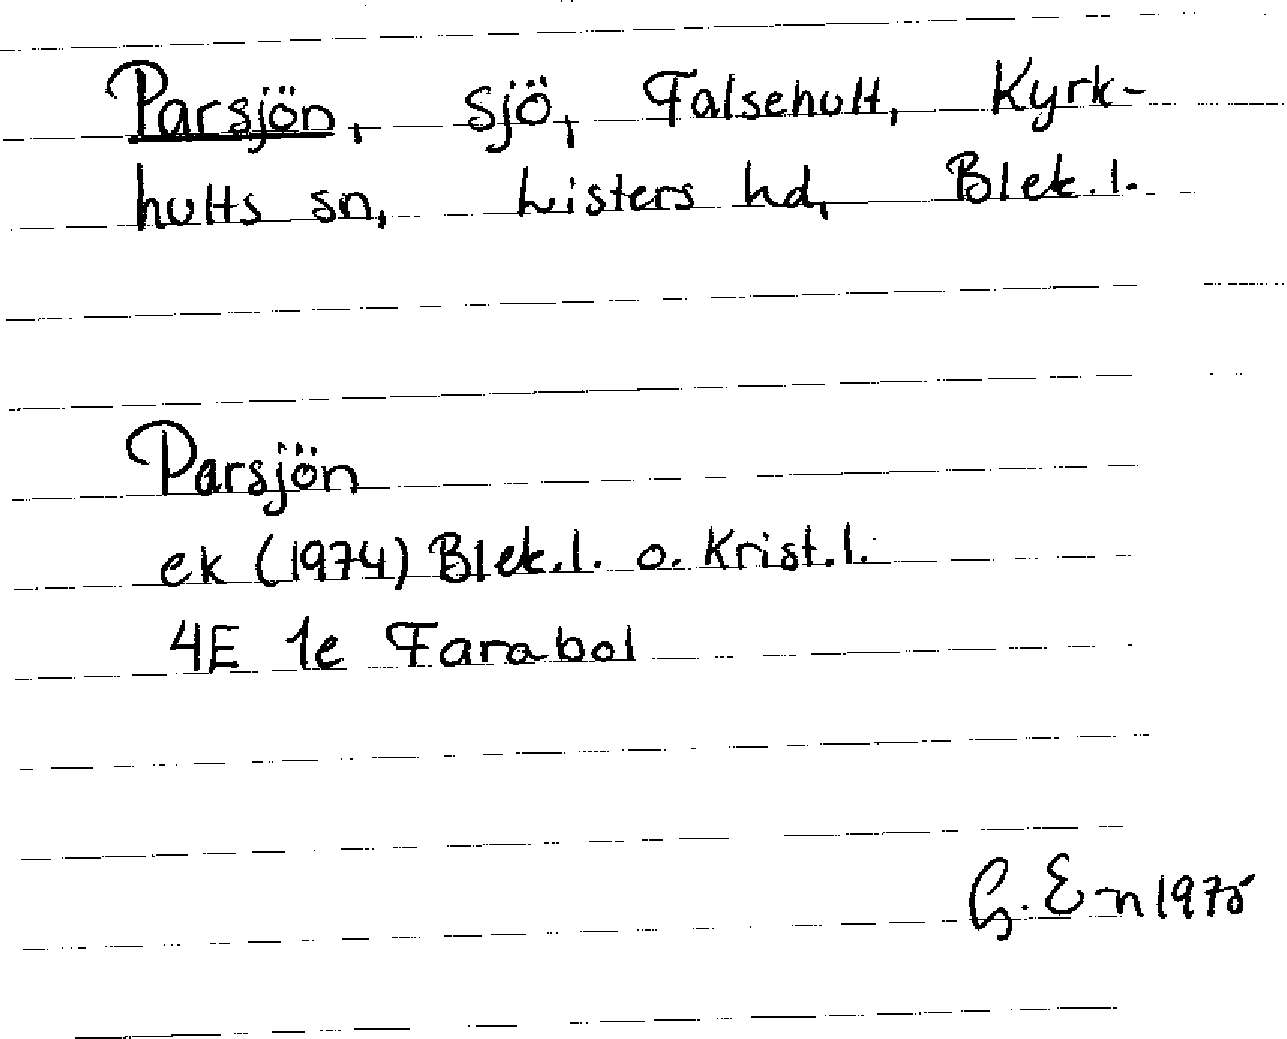 Parsjön, sjö, Falsehult, Kyrk-
hults sn, Listers hd, Blek.l.
Parsjön
ek (1974) Blek.l. o. Krist.l.
4E 1e Farabol
G. E-n 1975